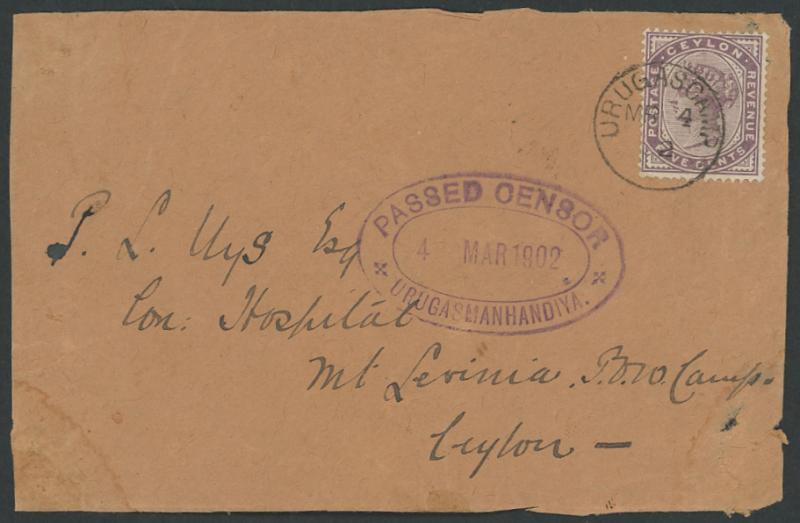 CEYLON
POSTAGE
REVENUE
FIVE CENTS
URUGASCAMP
MR 4
2
PASSED CENSOR
4 MAR 1902
URUGASMANHANDIYA.
P. L. Uys Esq
Con: Hospital
Mt Levinia. P.O.W. Camp.
Ceylon —